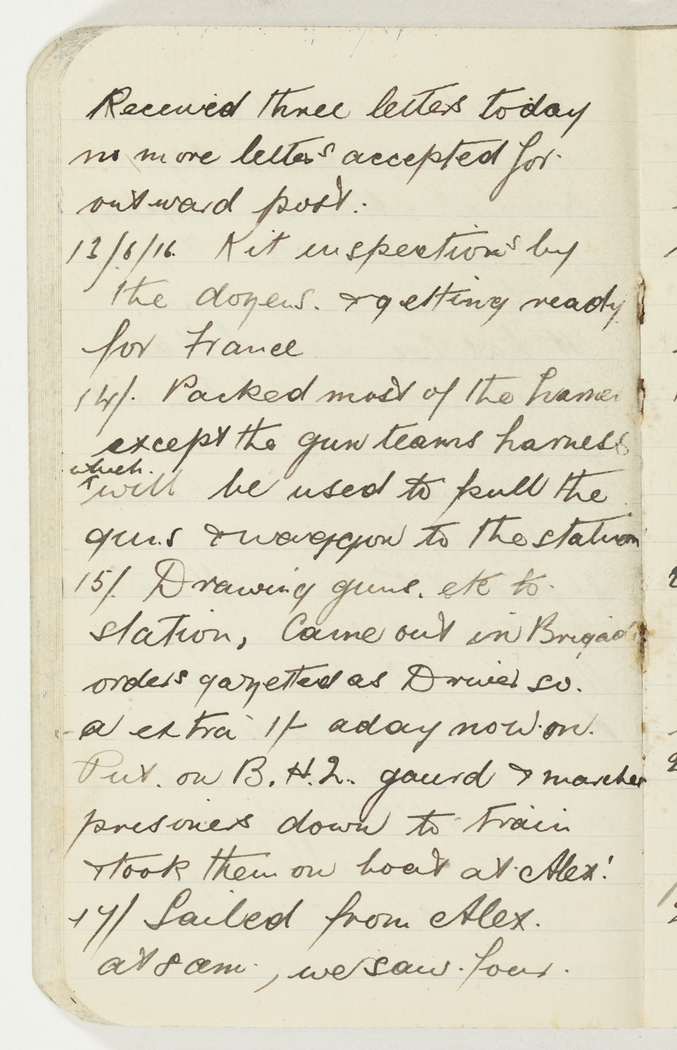 Received three letters today
no more letters accepted for
outward post.
13/6/16. Kit inspections by
the dozens. & getting ready
for France
14/. Packed most of the harness
except the gun teams harness
which will be used to pull the
guns & waggon to the station
15/. Drawing guns. etc to
station, Came out in Brigade
orders gazetted as Driver so.
a extra 1/- a day now on.
Put on B.H.Q. gaurd & marched
prisoners down to train
& took them on boat at Alex!
17/ Sailed from Alex.
at 8 am., we saw four.